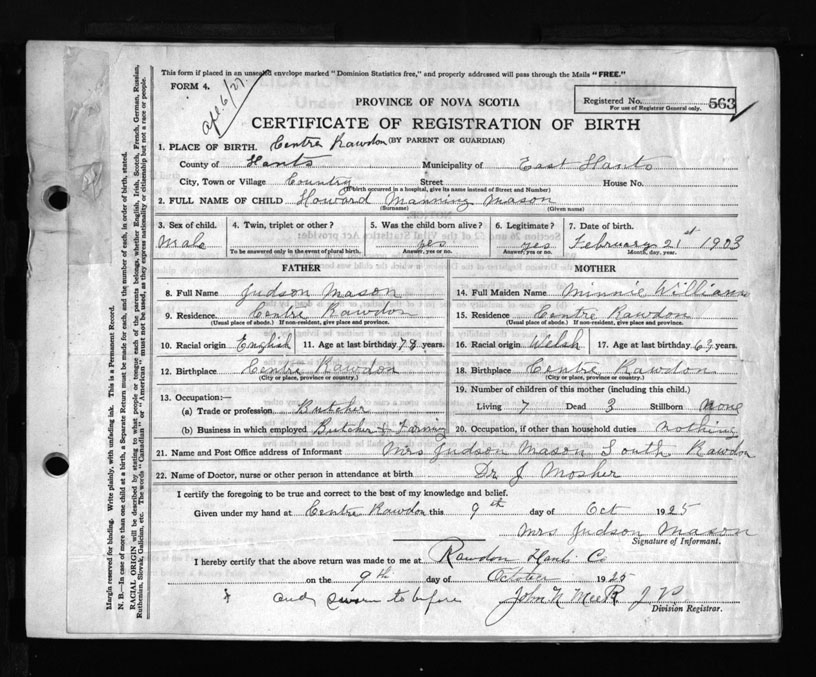 This form if placed in an unsealed envelope marked "Dominion Statistics free," and properly addressed will pass through the Mails "FREE."
FORM 4.
apl. 6/27.
PROVINCE OF NOVA SCOTIA
Registered No. 563
For use of Registrar General only.
CERTIFICATE OF REGISTRATION OF BIRTH
(BY PARENT OR GUARDIAN)
1. PLACE OF BIRTH. Centre Rawdon
County of Hants Municipality of East Hants
City, Town or Village Country Street House No.
(If birth occurred in a hospital, give its name instead of Street and Number)
2. FULL NAME OF CHILD Howard Manning Mason
(Surname) (Given name)
3. Sex of child. 4. Twin, triplet or other? 5. Was the child born alive? 6. Legitimate? 7. Date of birth.
Male yes yes February 21st 1903
To be answered only in the event of plural birth. Answer, yes or no. Answer, yes or no. Month, day, year.
FATHER MOTHER
8. Full Name Judson Mason 14. Full Maiden Name Minnie Williams
9. Residence. Centre Rawdon 15. Residence Centre Rawdon
(Usual place of abode.) If non-resident, give place and province. (Usual place of abode.) If non-resident, give place and province.
10. Racial origin English 11. Age at last birthday 78 years. 16. Racial origin Welsh 17. Age at last birthday 69 years.
12. Birthplace Centre Rawdon 18. Birthplace Centre Rawdon
(City or place, province or country.) (City or place, province or country.)
13. Occupation:— 19. Number of children of this mother (including this child.)
(a) Trade or profession. Butcher Living 7 Dead 3 Stillborn none
(b) Business in which employed Butcher & Farming 20. Occupation, if other than household duties nothing
21. Name and Post Office address of Informant Mrs Judson Mason South Rawdon
22. Name of Doctor, nurse or other person in attendance at birth Dr J Mosher
I certify the foregoing to be true and correct to the best of my knowledge and belief.
Given under my hand at Centre Rawdon this 9th day of Oct 1925
Mrs Judson Mason
Signature of Informant.
I hereby certify that the above return was made to me at Rawdon Hants Co
on the 9th day of October 1925
and sworn to before John N J P
Division Registrar.
Margin reserved for binding. Write plainly, with unfading ink. This is a Permanent Record.
N. B.—In case of more than one child at a birth, a Separate Return must be made for each, and the number of each, in order of birth, stated.
RACIAL ORIGIN will be described by stating to what people or tongue each of the parents belongs, whether English, Irish, Scotch, French, German, Russian,
Ruthenian, Slovak, Galician, etc. The words "Canadian" or "American" must not be used, as they express nationality or citizenship but not a race or people.